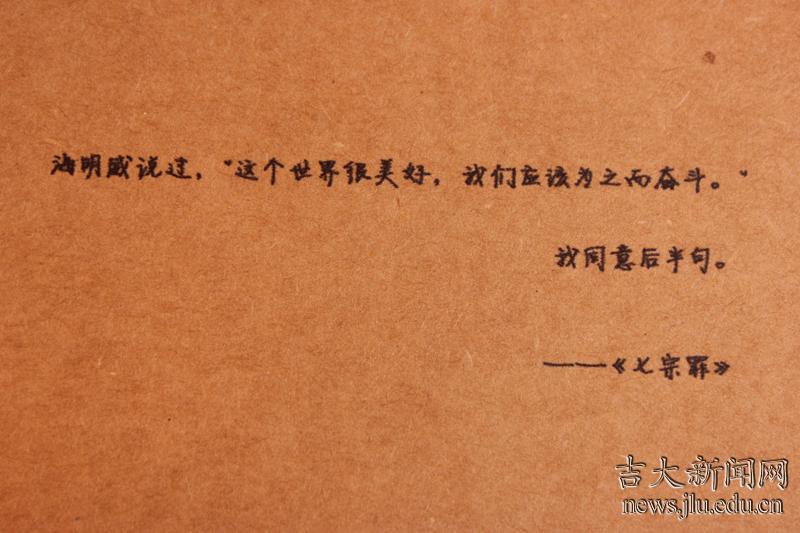 海明威说过，“这个世界很美好，我们应该为之而奋斗。”
我同意后半句。
——《七宗罪》
吉大新闻网
news.jlu.edu.cn